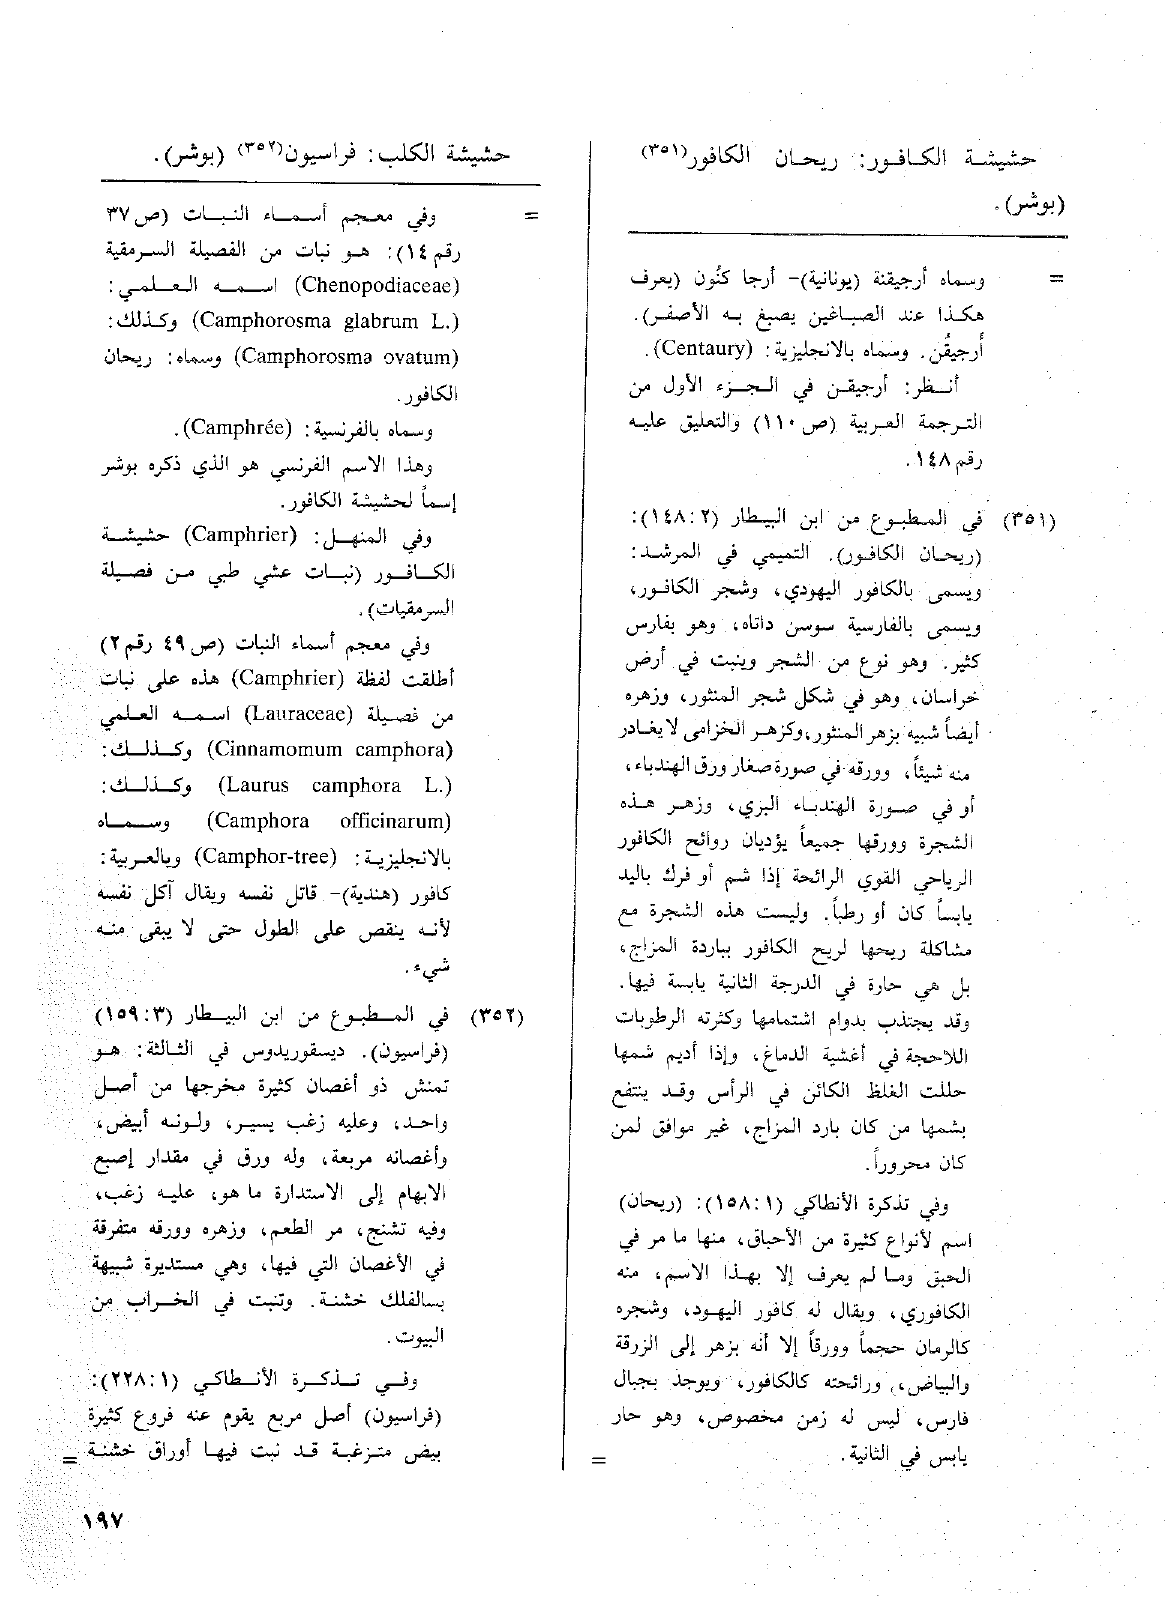 حشيشة الكافور: ريحان الكافور(٣٥١)
(بوشر).
= وسماه أرجيقنة (يونانية)- أرجا كنُون (يعرف
هكذا عند الصباغين يصبغ به الأصفر).
أرجيقُن. وسماه بالانجليزية: (Centaury).
أنظر: أرجيقن في الجزء الأول من
الترجمة العربية (ص ١١٠) والتعليق عليه
رقم ١٤٨.
(٣٥١) في المطبوع من ابن البيطار (٢: ١٤٨):
(ريحان الكافور). التميمي في المرشد:
ويسمى بالكافور اليهودي، وشجر الكافور،
ويسمى بالفارسية سوسن داناه، وهو بفارس
كثير. وهو نوع من الشجر وينبت في أرض
خراسان، وهو في شكل شجر المنثور، وزهره
أيضاً شبيه بزهر المنثور، وكزهر الخزامى لا يغادر
منه شيئاً، وورقه في صورة صغار ورق الهندباء،
أو في صورة الهندباء البري، وزهر هذه
الشجرة وورقها جميعاً يؤديان روائح الكافور
الرياحي القوي الرائحة إذا شم أو فرك باليد
يابساً كان أو رطباً. وليست هذه الشجرة مع
مشاكلة ريحها لريح الكافور بباردة المزاج،
بل هي حارة في الدرجة الثانية يابسة فيها.
وقد يجتذب بدوام اشتمامها وكثرته الرطوبات
اللاحجة في أغشية الدماغ، وإذا أديم شمها
حللت الغلظ الكائن في الرأس وقد ينتفع
بشمها من كان بارد المزاج، غير موافق لمن
كان محروراً.
وفي تذكرة الأنطاكي (١: ١٥٨): (ريحان)
اسم لأنواع كثيرة من الأحباق، منها ما مر في
الحبق وما لم يعرف إلا بهذا الاسم، منه
الكافوري، ويقال له كافور اليهود، وشجره
كالرمان حجماً وورقاً إلا أنه بزهر إلى الزرقة
والبياض، ورائحته كالكافور، ويوجد بجبال
فارس، ليس له زمن مخصوص، وهو حار
يابس في الثانية. =
حشيشة الكلب: فراسيون(٣٥٢) (بوشر).
= وفي معجم أسماء النبات (ص ٣٧
رقم ١٤): هو نبات من الفصيلة السرمقية
(Chenopodiaceae) اسمه العلمي:
(Camphorosma glabrum L.) وكذلك:
(Camphorosma ovatum) وسماه: ريحان
الكافور.
وسماه بالفرنسية: (Camphrée).
وهذا الاسم الفرنسي هو الذي ذكره بوشر
إسماً لحشيشة الكافور.
وفي المنهل: (Camphrier) حشيشة
الكافور (نبات عشبي طبي من فصيلة
السرمقيات).
وفي معجم أسماء النبات (ص ٤٩ رقم ٢)
أطلقت لفظة (Camphrier) هذه على نبات
من فصيلة (Lauraceae) اسمه العلمي
(Cinnamomum camphora) وكذلك:
(Laurus camphora L.) وكذلك:
(Camphora officinarum) وسماه
بالانجليزية: (Camphor-tree) وبالعربية:
كافور (هندية)- قاتل نفسه ويقال آكل نفسه
لأنه ينقص على الطول حتى لا يبقى منه
شيء.
(٣٥٢) في المطبوع من ابن البيطار (٣: ١٥٩)
(فراسيون). ديسقوريدوس في الثالثة: هو
تمنش ذو أغصان كثيرة مخرجها من أصل
واحد، وعليه زغب يسير، ولونه أبيض،
وأغصانه مربعة، وله ورق في مقدار إصبع
الابهام إلى الاستدارة ما هو، عليه زغب،
وفيه تشنج، مر الطعم، وزهره وورقه متفرقة
في الأغصان التي فيها، وهي مستديرة شبيهة
بالفلك خشنة. وتنبت في الخراب من
البيوت.
وفي تذكرة الأنطاكي (١: ٢٢٨):
(فراسيون) أصل مربع يقوم عنه فروع كثيرة
بيض متزغبة قد نبت فيها أوراق خشنة =
١٩٧